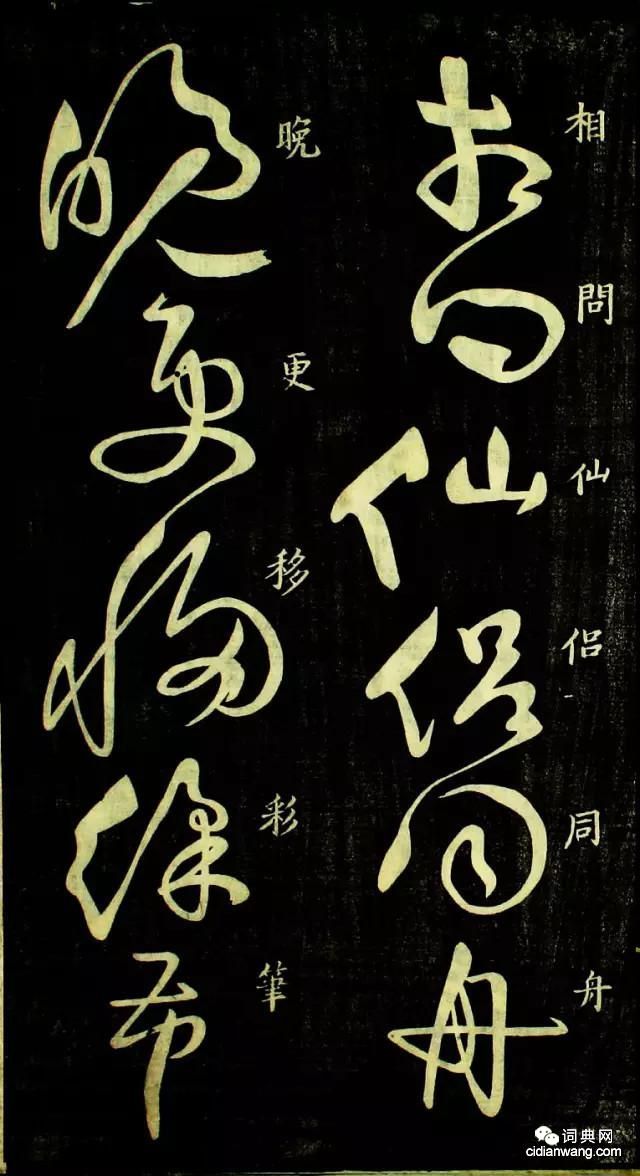 相問仙侣同舟
相問仙侣同舟
晚更移彩筆
晚更移彩筆
词典网
cidianwang.com